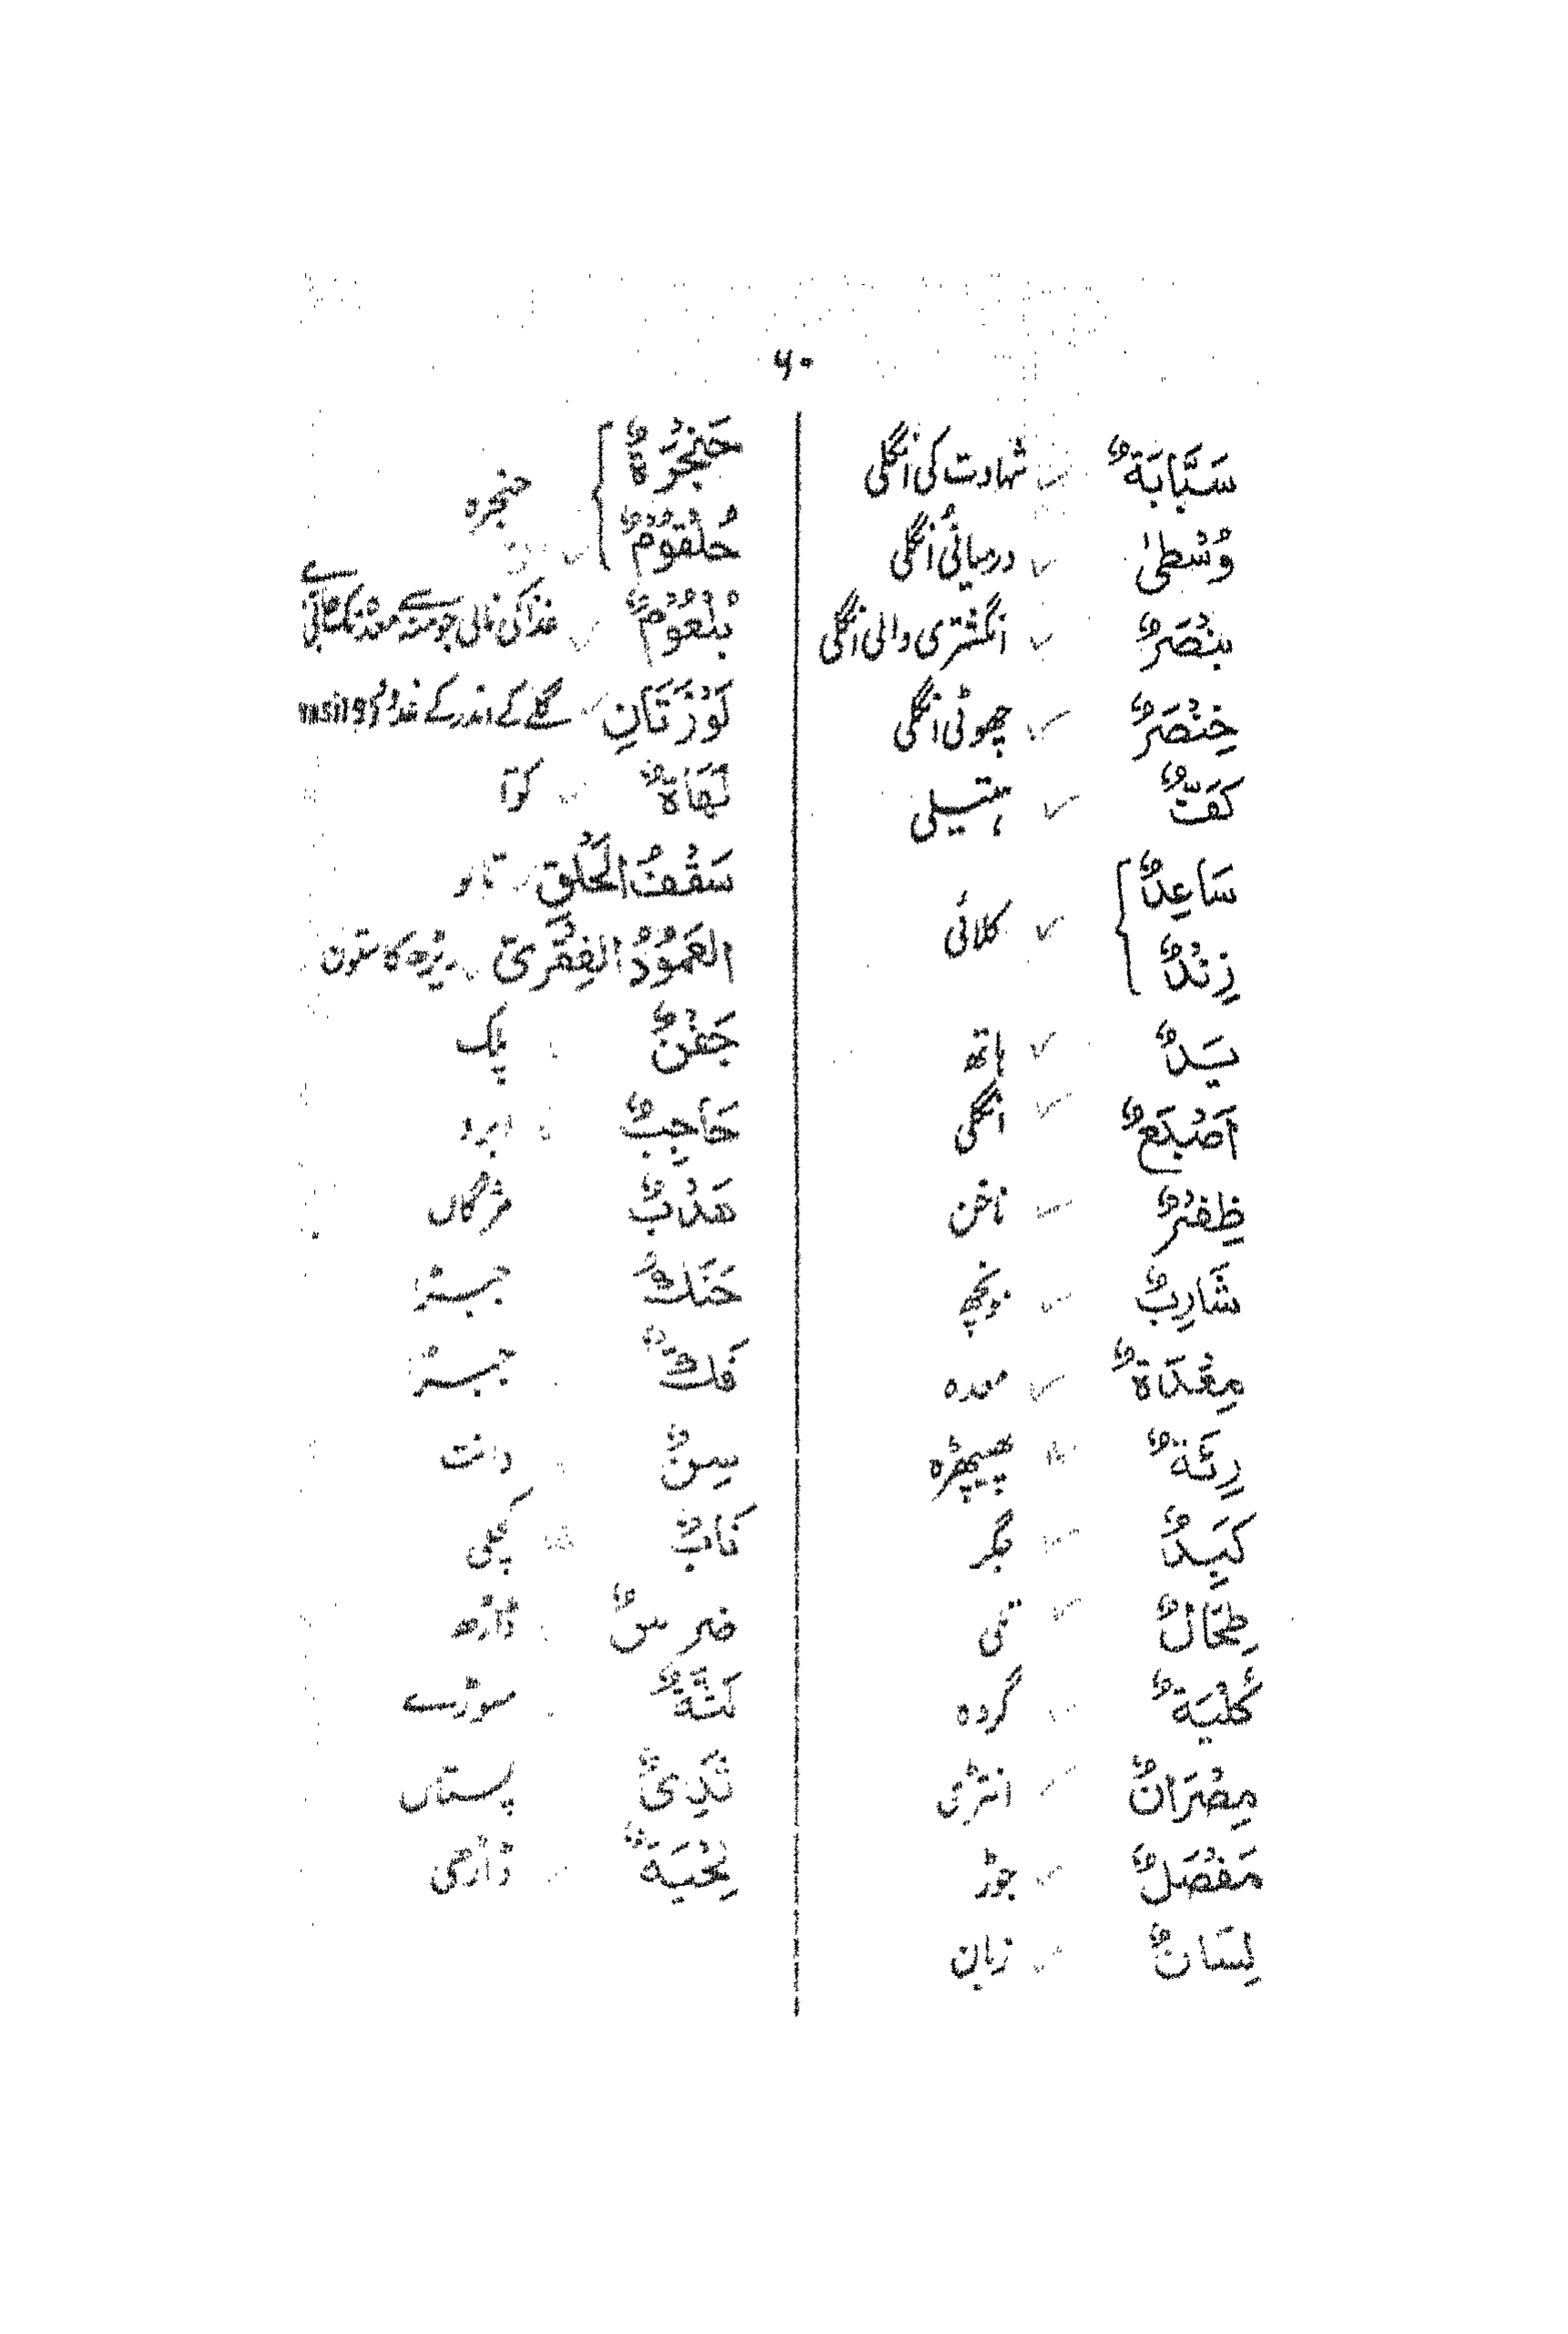 ۶۰
سَبَّابَةٌ شہادت کی انگلی
وُسْطیٰ درمیانی اُنگلی
بِنْصَرٌ انگشتری والی انگلی
خِنْصَرٌ چھوٹی انگلی
كَفٌّ ہتھیلی
سَاعِدٌ
زِنْدٌ } کلائی
يَدٌ ہاتھ
اَصْبَعٌ انگلی
ظِفْرٌ ناخن
شَارِبٌ مونچھ
مِعْدَةٌ معدہ
رِئَةٌ پھیپھڑہ
كَبِدٌ جگر
طِحَالٌ تلی
كُلْيَةٌ گردہ
مِصْرَانٌ انتڑی
مَفْصَلٌ جوڑ
لِسَانٌ زبان
حَنْجُرَةٌ
حُلْقُوْمٌ } حنجرہ
بُلْعُوْمٌ غذا کی نالی جو منہ سے معدہ تک جاتی ہے
لَوْزَتَانِ گلے کے اندر کے غدود Tonsil
لَهَاةٌ کوّا
سَقْفُ الْحَلْقِ تالو
العَمُوْدُ الفِقْرِیّ ریڑھ کا ستون
جَفْنٌ پلک
حَاجِبٌ ابرو
هَدْبٌ مژگاں
حَنَكٌ جبڑا
فَكٌّ جبڑا
سِنٌّ دانت
نَابٌ کچلی
ضرسٌ ڈاڑھ
لَثَّةٌ مسوڑے
ثَدِیٌ پستاں
لِحْيَةٌ ڈاڑھی